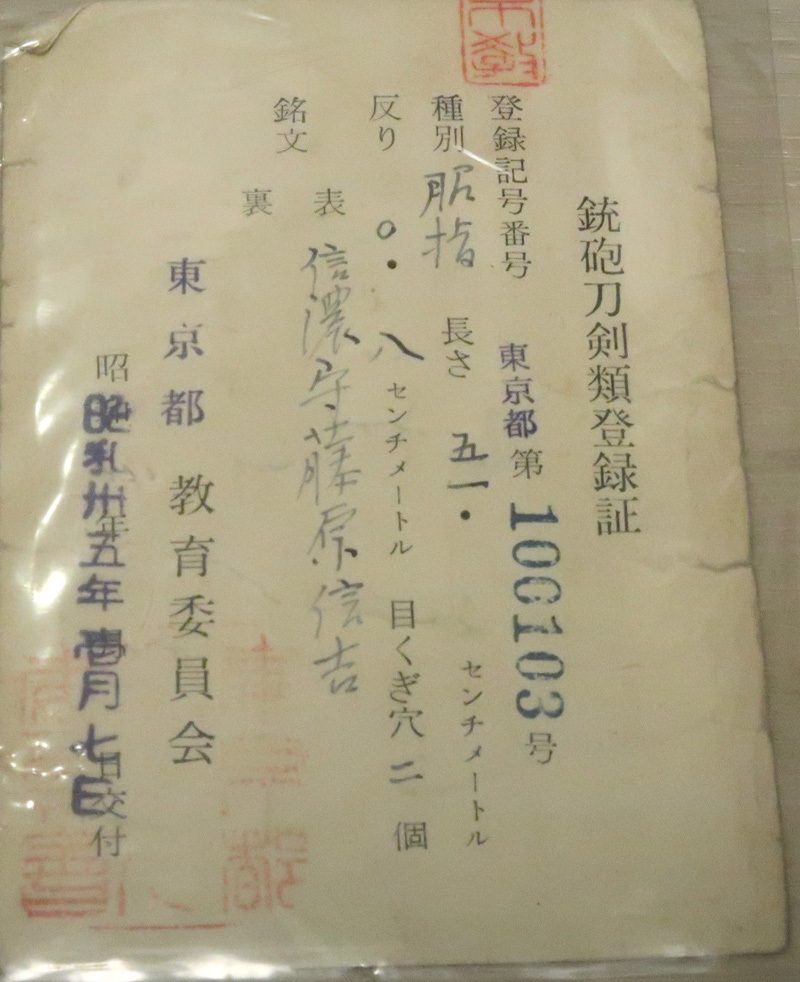 銃砲刀剣類登録証
登録記号番号 東京都第100103号
種別 脇指 長さ 五一・ センチメートル
反り 〇・八 センチメートル 目くぎ穴 二 個
銘文 表 信濃守藤原信吉
裏
東京都教育委員会
昭和卅五年壱月七日交付